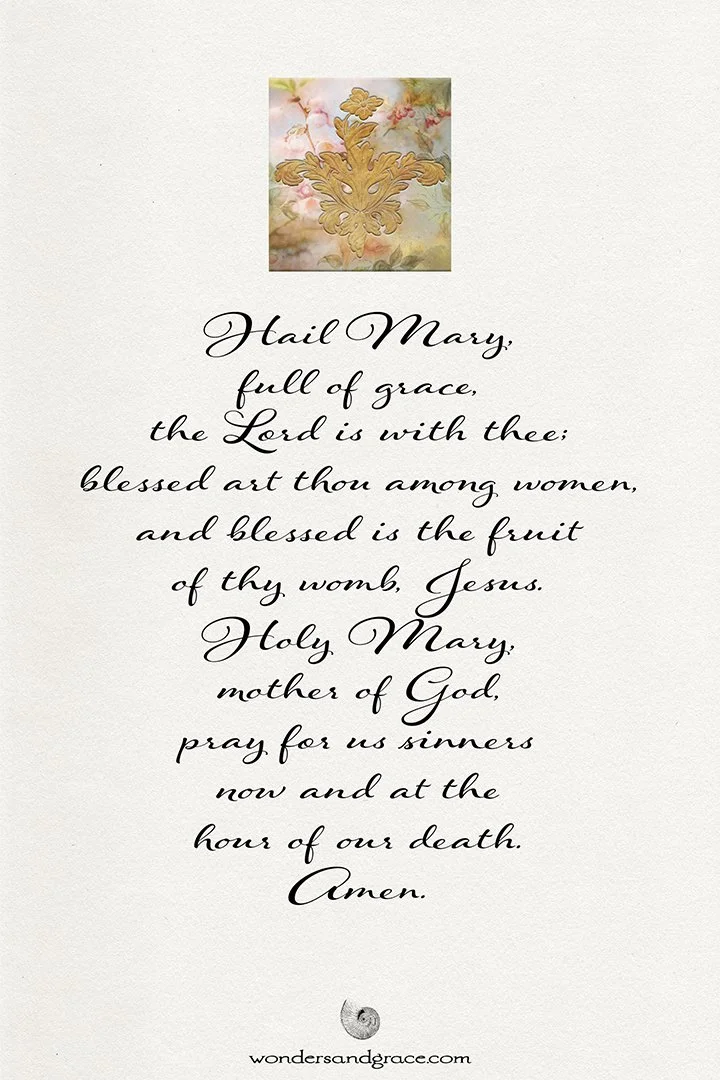 Hail Mary,
full of grace,
the Lord is with thee;
blessed art thou among women,
and blessed is the fruit
of thy womb, Jesus.
Holy Mary,
mother of God,
pray for us sinners
now and at the
hour of our death.
Amen.
wondersandgrace.com